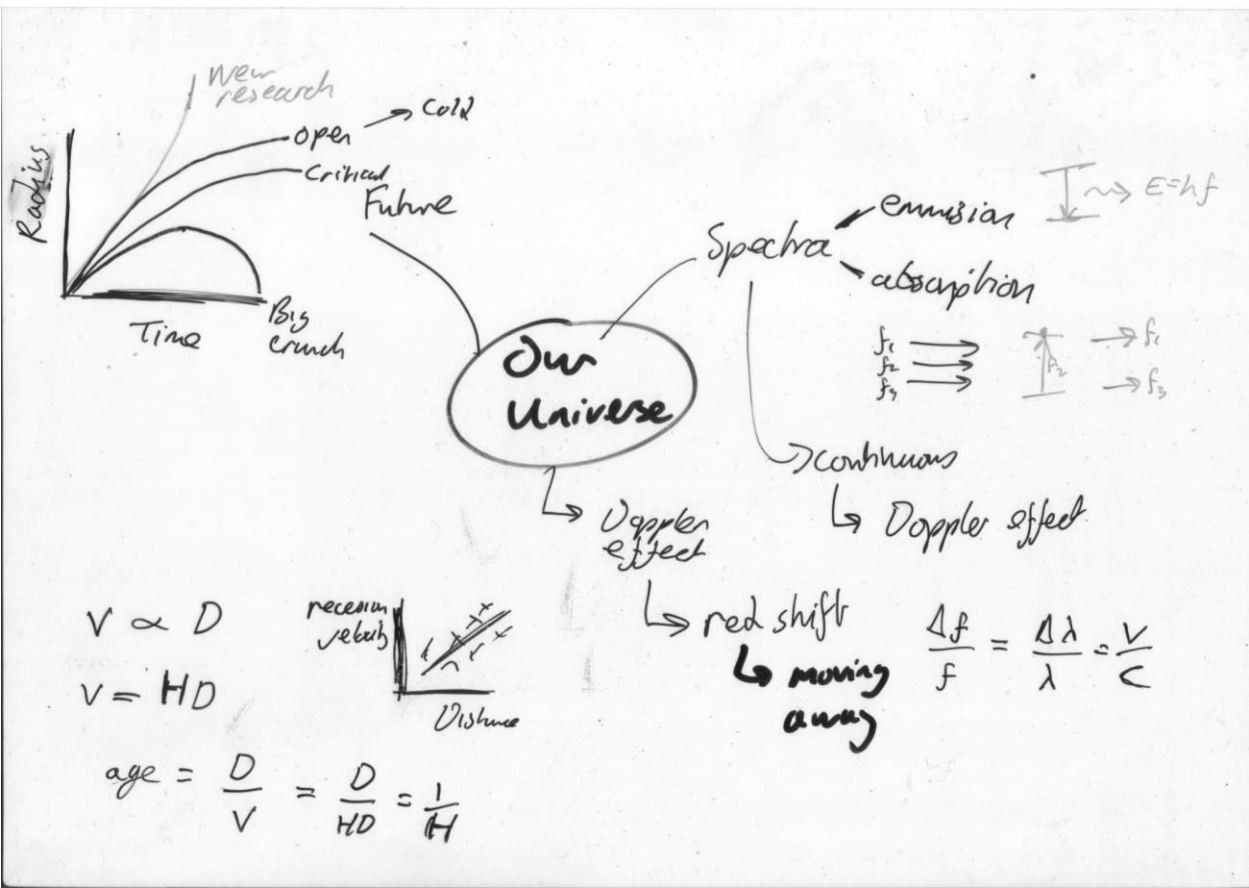 New
research
open
Cold
Critical
Radius
Time
Big
crunch
Future
Our
Universe
Spectra
emmision
E=hf
absorption
f₁
f₂
f₃
f₂
f₁
f₃
continuous
Doppler effect
Doppler
effect
red shift
moving
away
Δf/f = Δλ/λ = v/c
V ∝ D
V = HD
recession
velocity
Distance
age = D/V = D/HD = 1/H